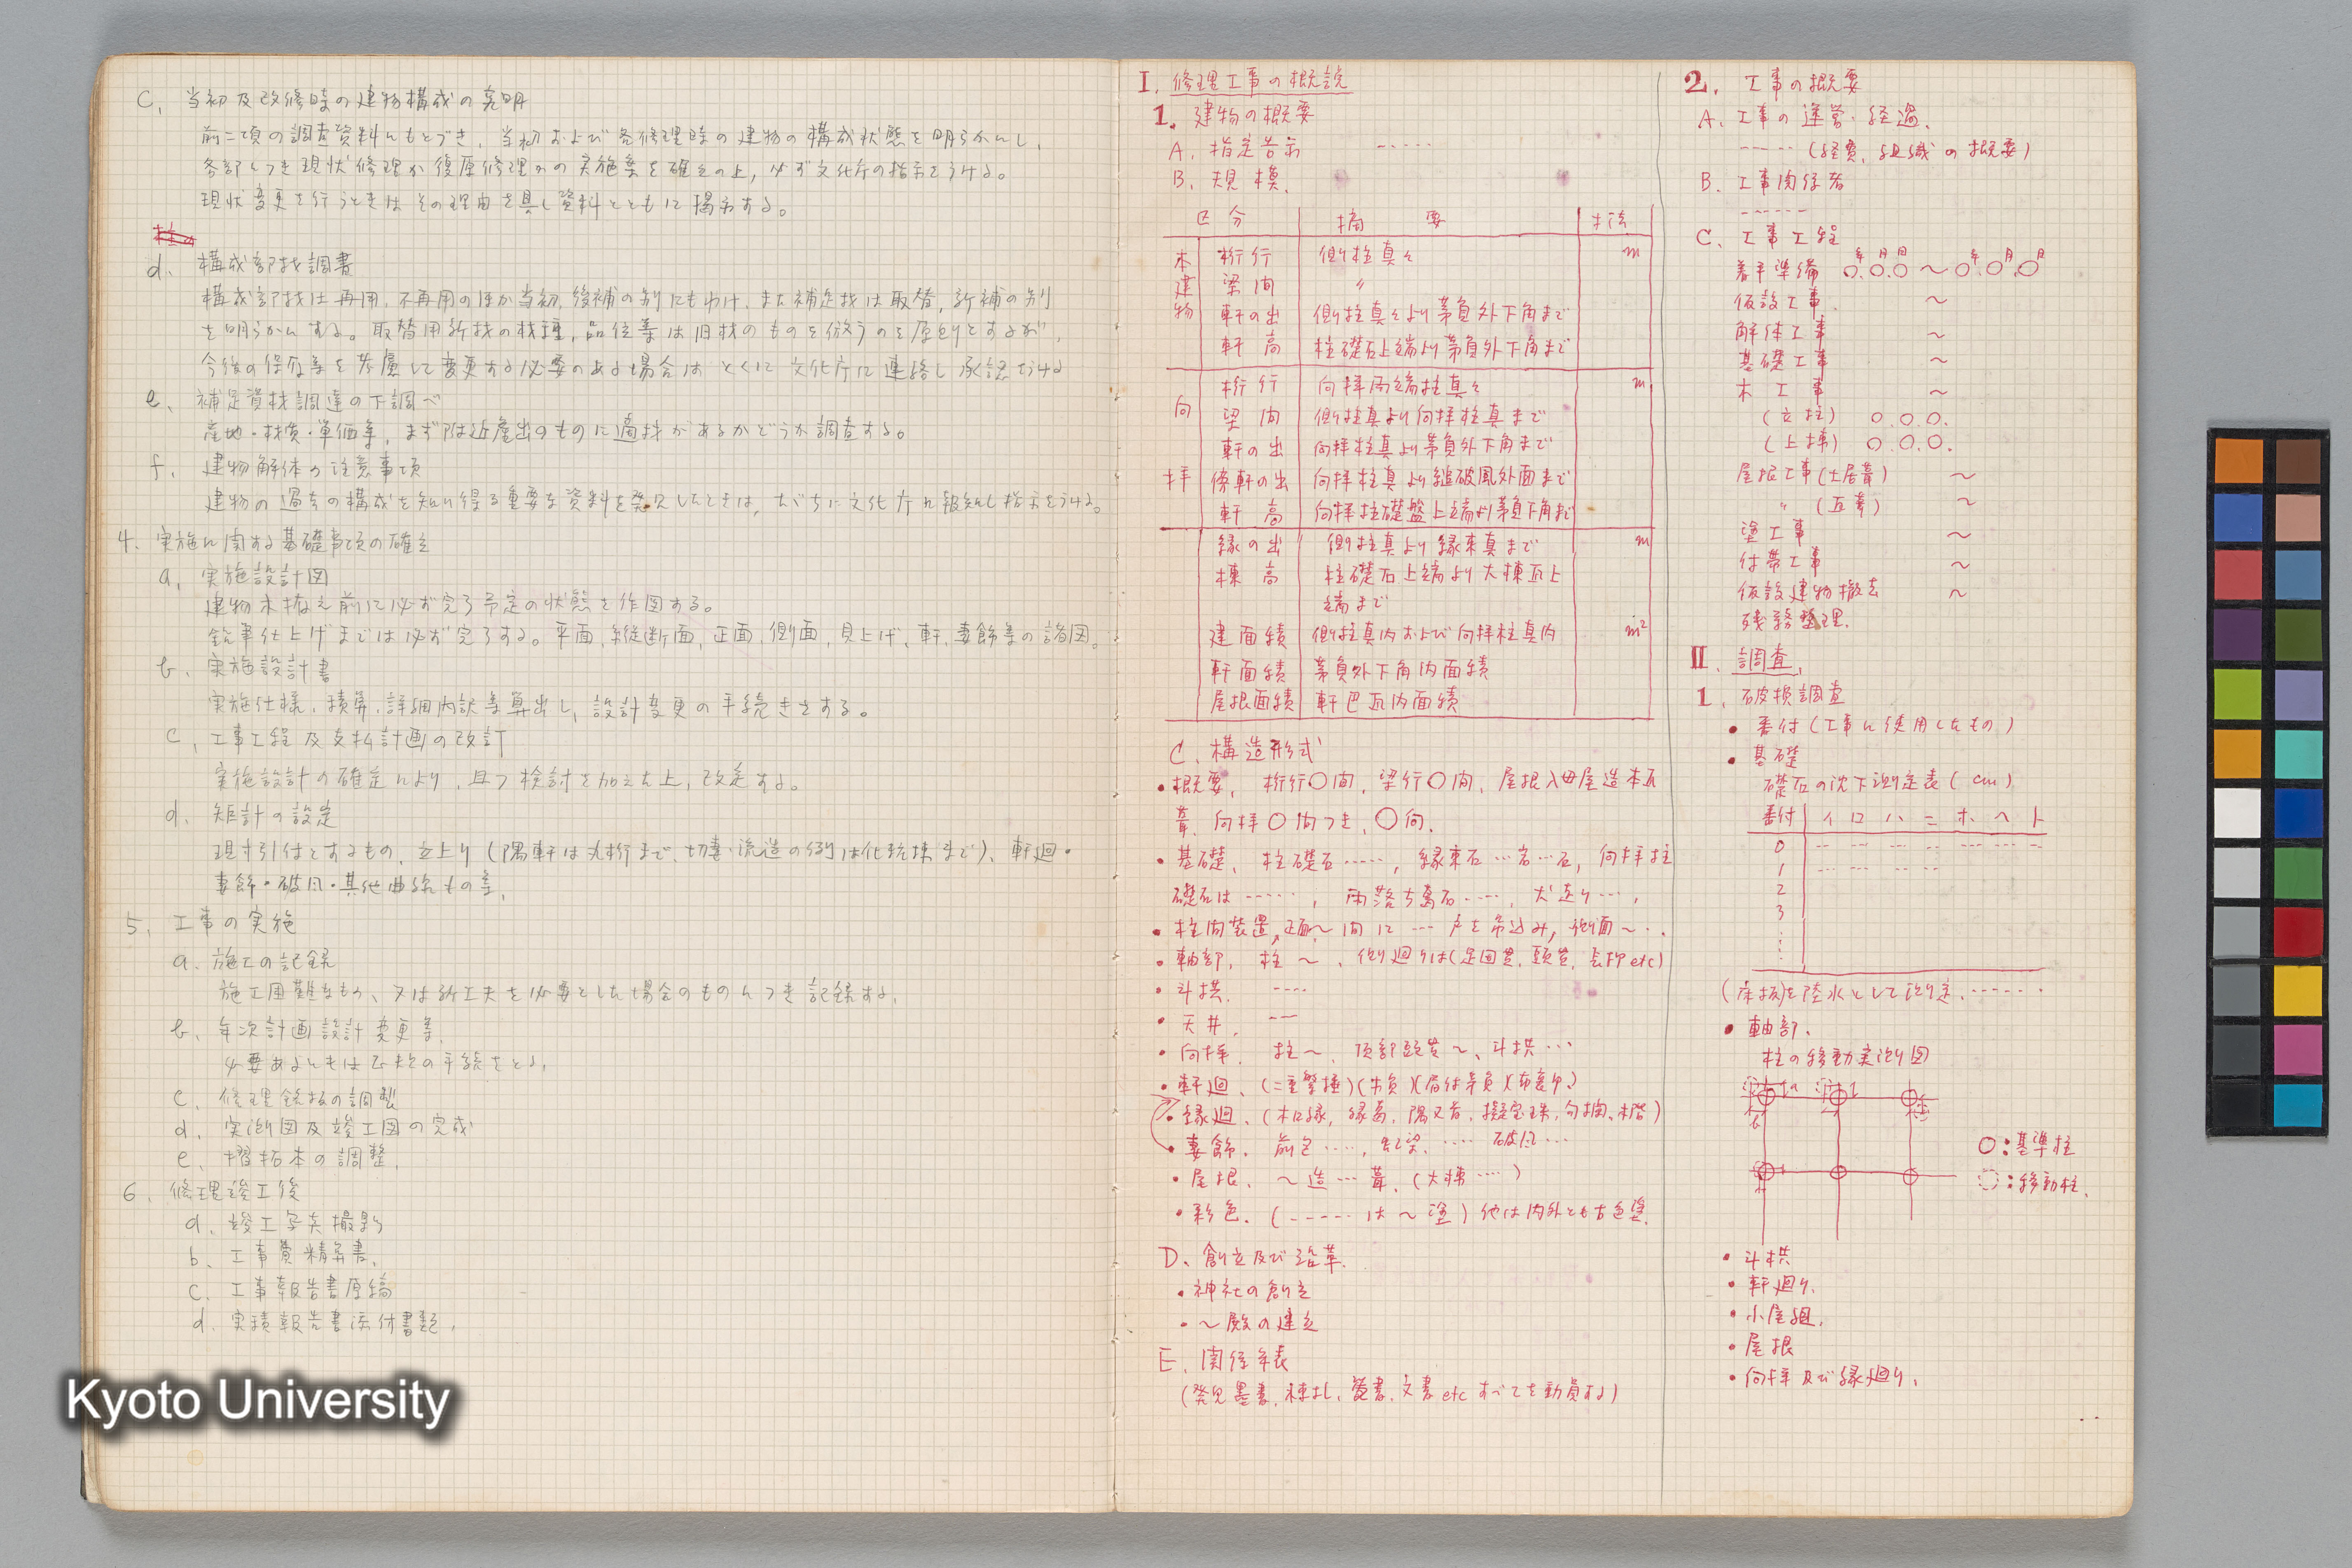 C. 当初及改修時の建物構成の究明
前二項の調査資料にもとづき、当初および各修理時の建物の構成状態を明らかにし、
各部につき現状修理か復原修理かの実施案を確立の上, 必ず文化庁の指示をうける。
現状変更を行うときはその理由を具し資料とともに掲示する。
d. 構成部材調書
構成部材は再用, 不再用のほか当初, 後補の別にもわけ, また補足材は取替, 新補の別
を明らかにする。取替用新材の材種, 品位等は旧材のものを倣うのを原則とするが,
今後の保存等を考慮して変更する必要のある場合はとくに文化庁に連絡し承認をうける
e. 補足資材調達の下調べ
産地・材質・単価等, まず附近産出のものに適材があるかどうか調査する。
f. 建物解体の注意事項
建物の過去の構成を知り得る重要な資料を発見したときは, ただちに文化庁に報知し指示をうける。
4. 実施に関する基礎事項の確立
a. 実施設計図
建物木拵え前に必ず完了予定の状態を作図する。
鉛筆仕上げまでは必ず完了する。平面, 縦断面, 正面, 側面, 見上げ, 軒, 妻飾等の諸図。
b. 実施設計書
実施仕様, 積算, 詳細内訳等算出し, 設計変更の手続きをする。
C. 工事工程及支払計画の改訂
実施設計の確定により, 且つ検討を加えた上, 改定する。
d. 矩計の設定
現寸引付とするもの, 立上り (隅軒は丸桁まで, 切妻・流造の例は化粧棟まで)、軒廻・
妻飾・破風・其他曲線もの等,
5. 工事の実施
a. 施工の記録
施工困難なもの、又は新工夫を必要とした場合のものにつき記録する,
b. 年次計画設計変更等,
必要あるときは正規の手続をとる,
c. 修理銘板の調製
d. 実測図及竣工図の完成
e. 摺拓本の調整,
6. 修理竣工後
a. 竣工写真撮影
b. 工事費精算書,
c. 工事報告書原稿
d. 実績報告書添付書類,
I. 修理工事の概説
1. 建物の概要
A. 指定告示 -----
B. 規模.
区分 摘要 寸法
本建物 桁行 側柱真々 m
梁間 〃
軒の出 側柱真々より茅負外下角まで
軒高 柱礎石上端より茅負外下角まで
向拝 桁行 向拝両端柱真々 m
梁間 側柱真より向拝柱真まで
軒の出 向拝柱真より茅負外下角まで
傍軒の出 向拝柱真より縋破風外面まで
軒高 向拝柱礎盤上端より茅負下角まで
縁の出 側柱真より縁束真まで m
棟高 柱礎石上端より大棟瓦上
端まで
建面積 側柱真内および向拝柱真内 m²
軒面積 茅負外下角内面積
屋根面積 軒巴瓦内面積
C. 構造形式
・概要, 桁行〇間, 梁行〇間, 屋根入母屋造本瓦
葺, 向拝〇間つき, 〇向.
・基礎, 柱礎石……, 縁束石…岩…石, 向拝柱
礎石は……, 雨落ち葛石……, 犬走り…,
・柱間装置, 正面〜間に…戸を吊込み, 側面〜..
・軸部, 柱〜, 側廻りは(足固貫, 頭貫, 長押etc)
・斗拱. ----
・天井, ---
・向拝. 柱〜, 頂部頭貫〜, 斗拱…
・軒廻, (二重繁垂)(木負)(眉付茅負)(布裏甲)
・縁廻, (木口縁, 縁葛, 隅叉首, 擬宝珠, 勾欄, 木階)
・妻飾. 前包……, 虹梁. …… 破風…
・屋根, 〜造…葺, (大棟……)
・彩色. (------は〜塗) 他は内外とも古色塗.
D. 創立及び沿革.
・神社の創立
・〜殿の建立
E. 関係年表
(発見墨書, 棟札, 箆書, 文書 etc すべてを動員する)
2. 工事の概要
A. 工事の運営・経過.
----- (経費, 組織の概要)
B. 工事関係者
------
C. 工事工程
着手準備 〇年.〇月.〇日 〜 〇年.〇月.〇日
仮設工事. 〜
解体工事 〜
基礎工事 〜
木工事 〜
(立柱) 〇.〇.〇.
(上棟) 〇.〇.〇.
屋根工事(土居葺) 〜
〃 (瓦葺) 〜
塗工事 〜
付帯工事 〜
仮設建物撤去 〜
残務整理.
II. 調査,
1. 破損調査
・番付 (工事に使用したもの)
・基礎
礎石の沈下測定表 (cm)
番付 イ ロ ハ ニ ホ ヘ ト
0
1
2
3
(床板)を陸水として測定. ------
・軸部.
柱の移動実測図
a
b
〇:基準柱
◌:移動柱.
・斗栱
・軒廻り.
・小屋組.
・屋根
・向拝及び縁廻り.
Kyoto University